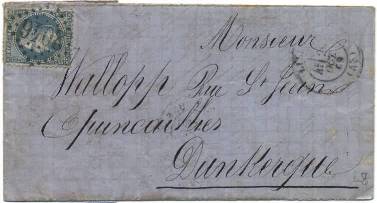 Monsieur
Wallopp Rue St Jean
Quincailher
Dunkerque